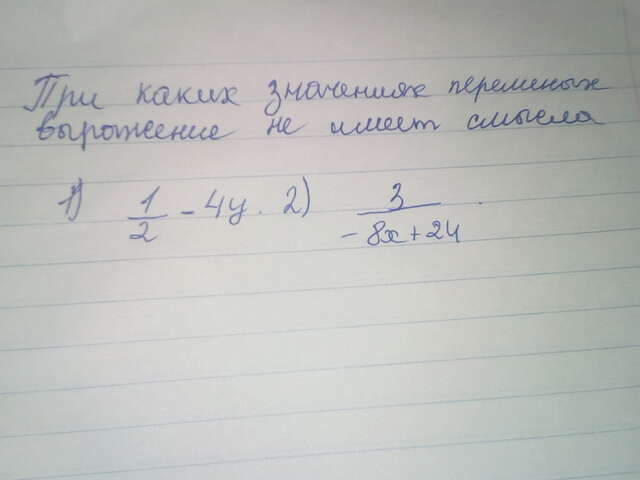 При каких значениях переменых
выражение не имеет смысла
1) 1/2 - 4y. 2) 3/(-8x+24).